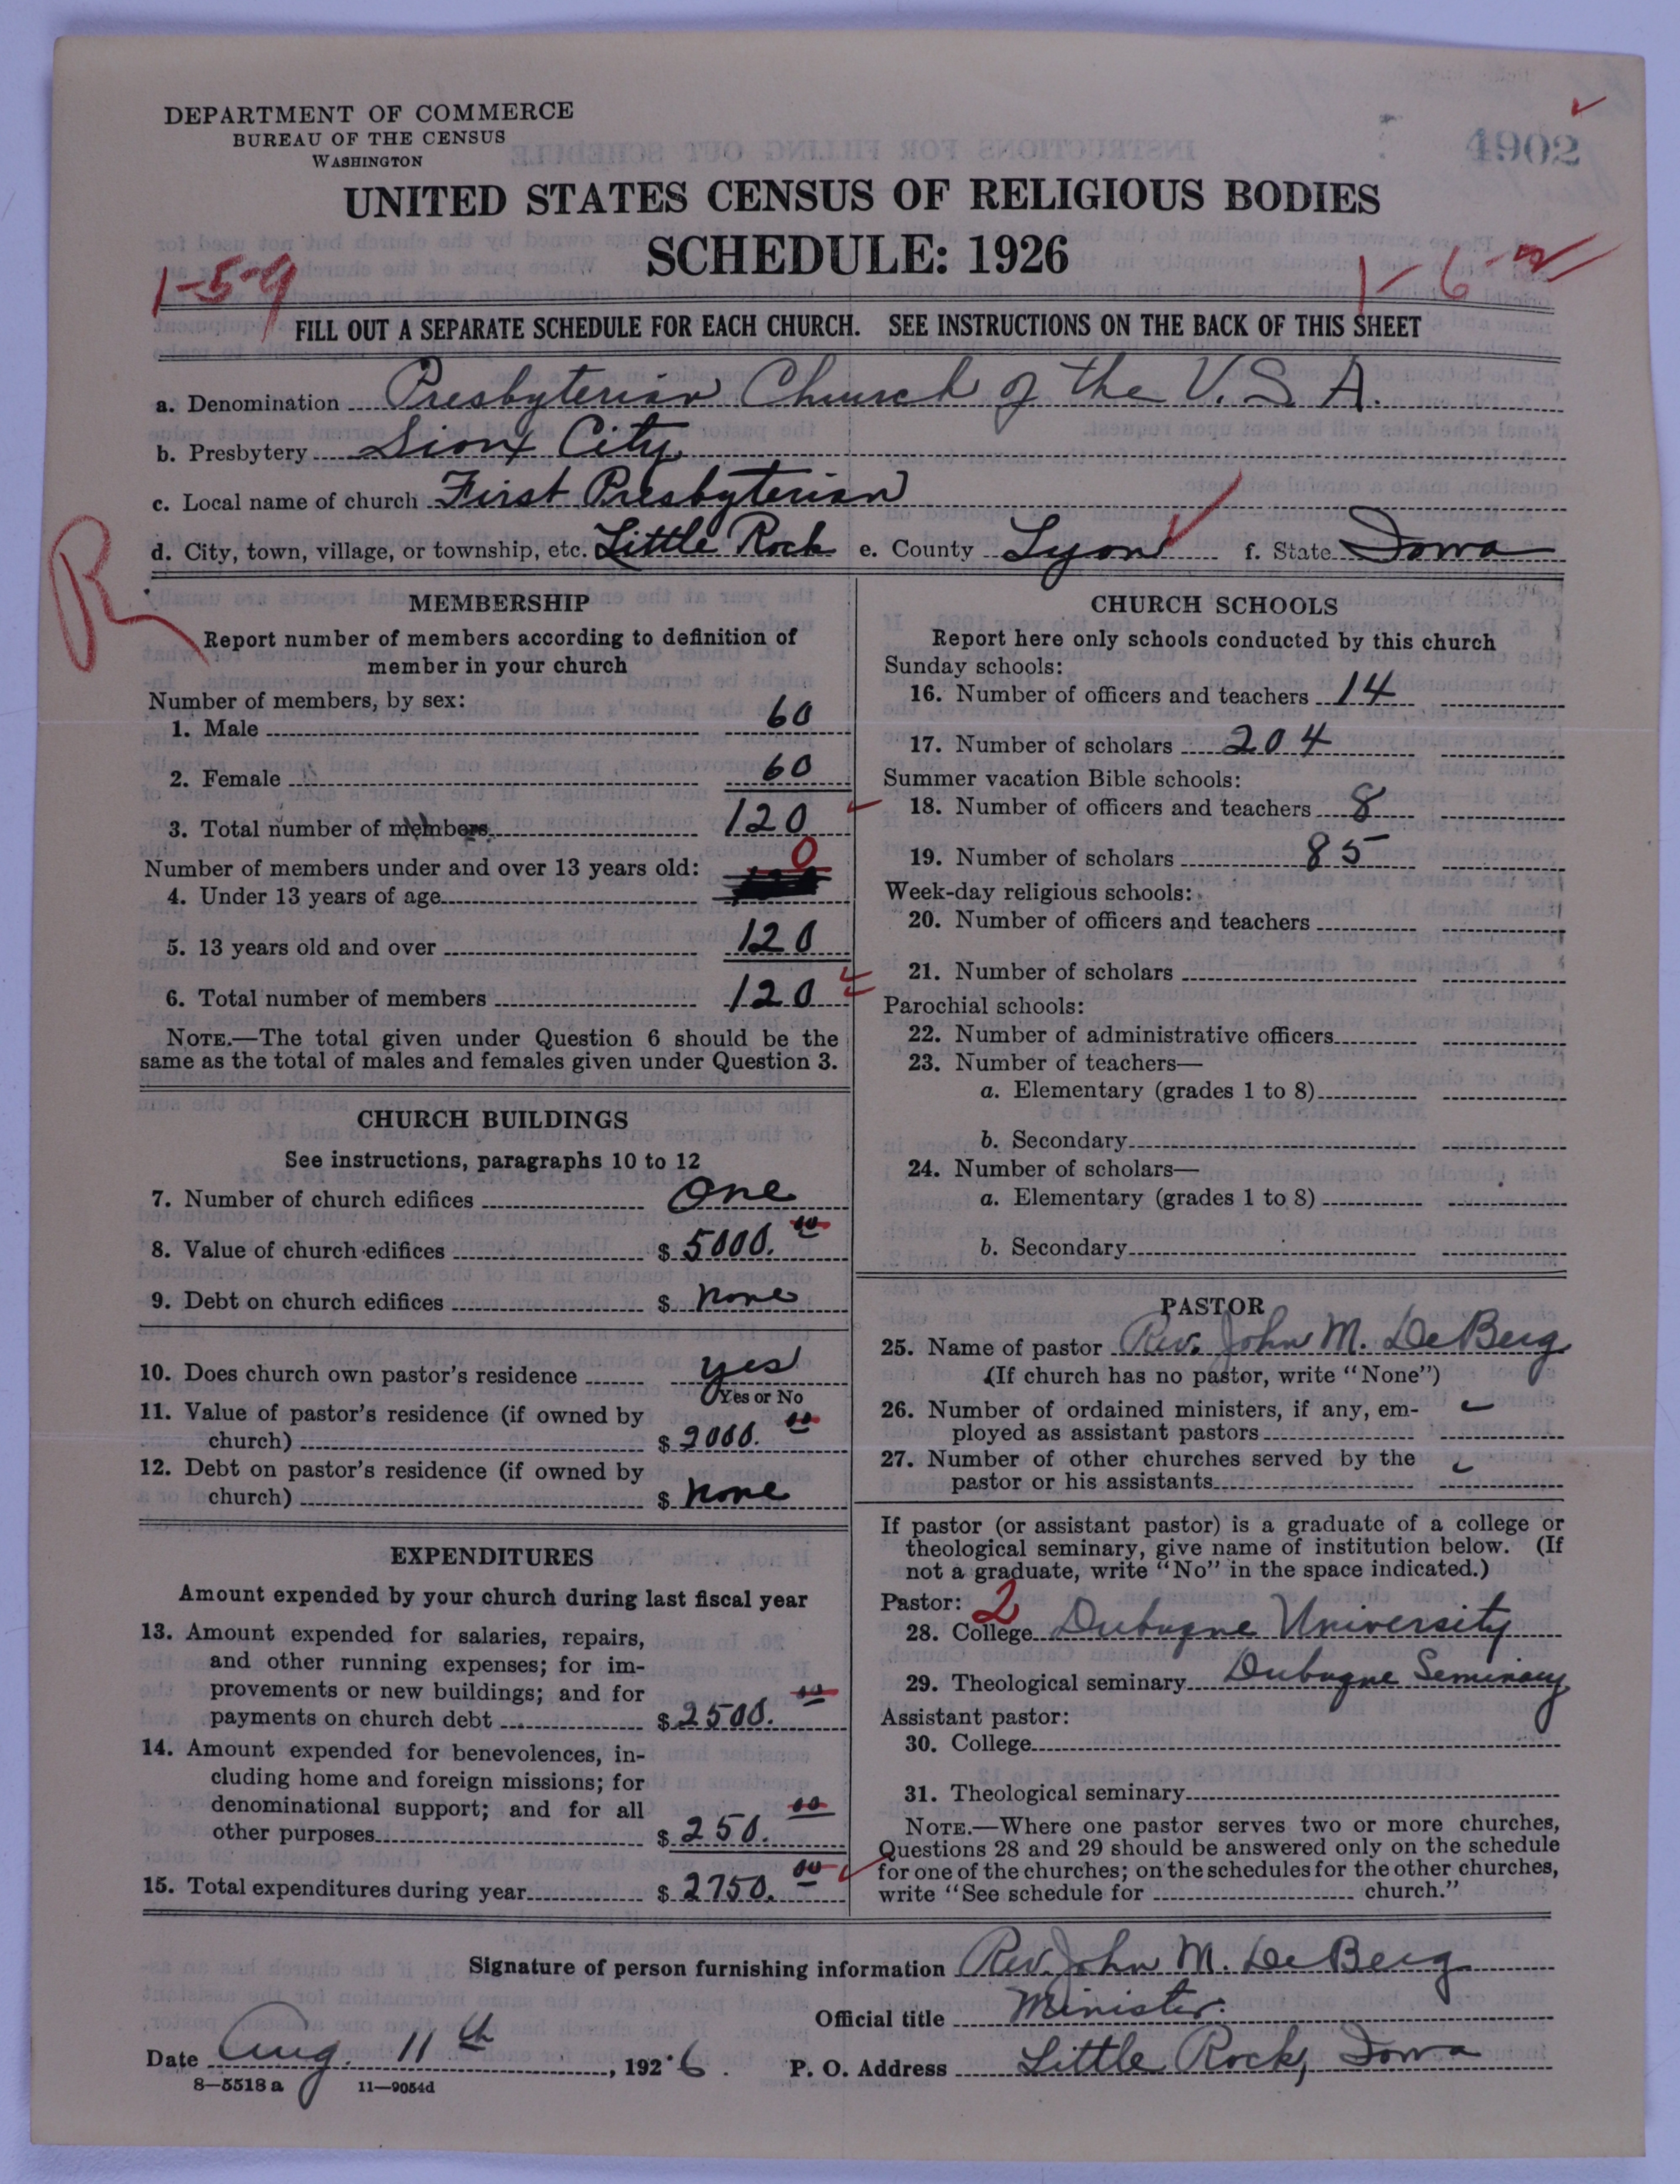 DEPARTMENT OF COMMERCE
BUREAU OF THE CENSUS
WASHINGTON
4902
UNITED STATES CENSUS OF RELIGIOUS BODIES
SCHEDULE: 1926
1-5-9
1-6-2
FILL OUT A SEPARATE SCHEDULE FOR EACH CHURCH. SEE INSTRUCTIONS ON THE BACK OF THIS SHEET
a. Denomination Presbyterian Church of the U.S.A.
b. Presbytery Sioux City
c. Local name of church First Presbyterian
d. City, town, village, or township, etc. Little Rock e. County Lyon f. State Iowa
R
MEMBERSHIP
Report number of members according to definition of
member in your church
Number of members, by sex:
1. Male 60
2. Female 60
3. Total number of members 120
Number of members under and over 13 years old:
4. Under 13 years of age 0
5. 13 years old and over 120
6. Total number of members 120
NOTE.—The total given under Question 6 should be the
same as the total of males and females given under Question 3.
CHURCH BUILDINGS
See instructions, paragraphs 10 to 12
7. Number of church edifices One
8. Value of church edifices $ 5000.00
9. Debt on church edifices $ none
10. Does church own pastor's residence yes
Yes or No
11. Value of pastor's residence (if owned by
church) $ 2000.00
12. Debt on pastor's residence (if owned by
church) $ none
EXPENDITURES
Amount expended by your church during last fiscal year
13. Amount expended for salaries, repairs,
and other running expenses; for im-
provements or new buildings; and for
payments on church debt $ 2500.00
14. Amount expended for benevolences, in-
cluding home and foreign missions; for
denominational support; and for all
other purposes $ 250.00
15. Total expenditures during year $ 2750.00
CHURCH SCHOOLS
Report here only schools conducted by this church
Sunday schools:
16. Number of officers and teachers 14
17. Number of scholars 204
Summer vacation Bible schools:
18. Number of officers and teachers 8
19. Number of scholars 85
Week-day religious schools:
20. Number of officers and teachers
21. Number of scholars
Parochial schools:
22. Number of administrative officers
23. Number of teachers—
a. Elementary (grades 1 to 8)
b. Secondary
24. Number of scholars—
a. Elementary (grades 1 to 8)
b. Secondary
PASTOR
25. Name of pastor Rev. John M. DeBerg
(If church has no pastor, write "None")
26. Number of ordained ministers, if any, em-
ployed as assistant pastors
27. Number of other churches served by the
pastor or his assistants
If pastor (or assistant pastor) is a graduate of a college or
theological seminary, give name of institution below. (If
not a graduate, write "No" in the space indicated.)
Pastor: 2
28. College Dubuque University
29. Theological seminary Dubuque Seminary
Assistant pastor:
30. College
31. Theological seminary
NOTE.—Where one pastor serves two or more churches,
Questions 28 and 29 should be answered only on the schedule
for one of the churches; on the schedules for the other churches,
write "See schedule for church."
Signature of person furnishing information Rev. John M. DeBerg
Official title Minister.
Date Aug. 11th, 1926. P. O. Address Little Rock, Iowa
8—5518 a 11—9054d